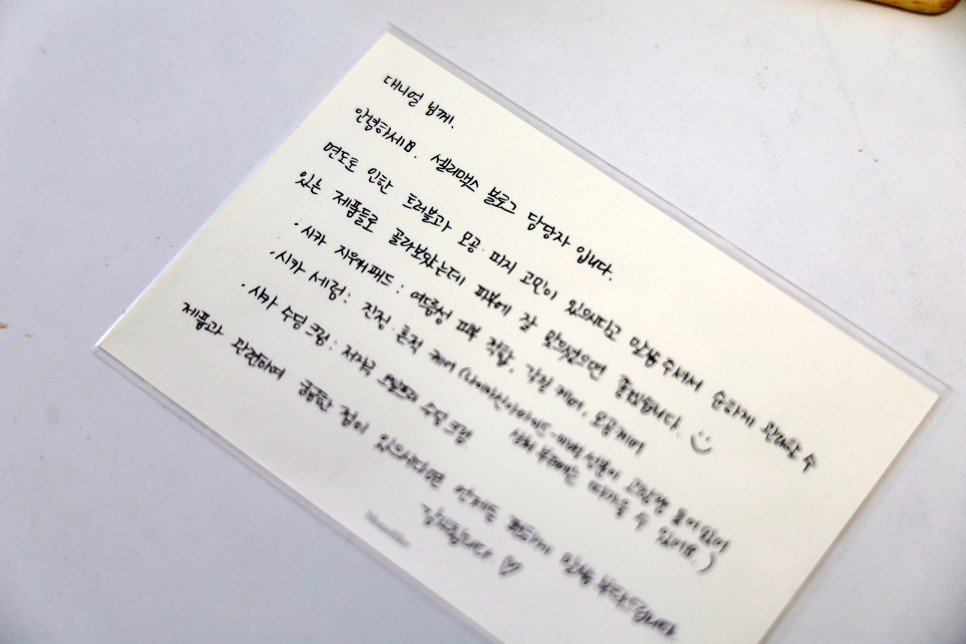 대니얼 님께.
안녕하세요. 셀리맥스 블로그 담당자 입니다.
면도로 인한 트러블과 모공·피지 고민이 있으시다고 말씀 주셔서 순하게 관리할 수
있는 제품들로 골라보았는데 피부에 잘 맞으셨으면 좋겠습니다. :)
· 시카 지우개패드 : 여드름성 피부 적합, 각질 케어, 모공케어
· 시카 세럼 : 진정·흔적 케어 (나이아신아마이드-미백 성분이 고함량 들어있어
상처 부위에는 따가울 수 있어요.)
· 시카 수딩크림 : 저자극 수딩 크림
제품과 관련하여 궁금한 점이 있으시다면 언제든 편하게 말씀 부탁드립니다.
감사합니다. ♡